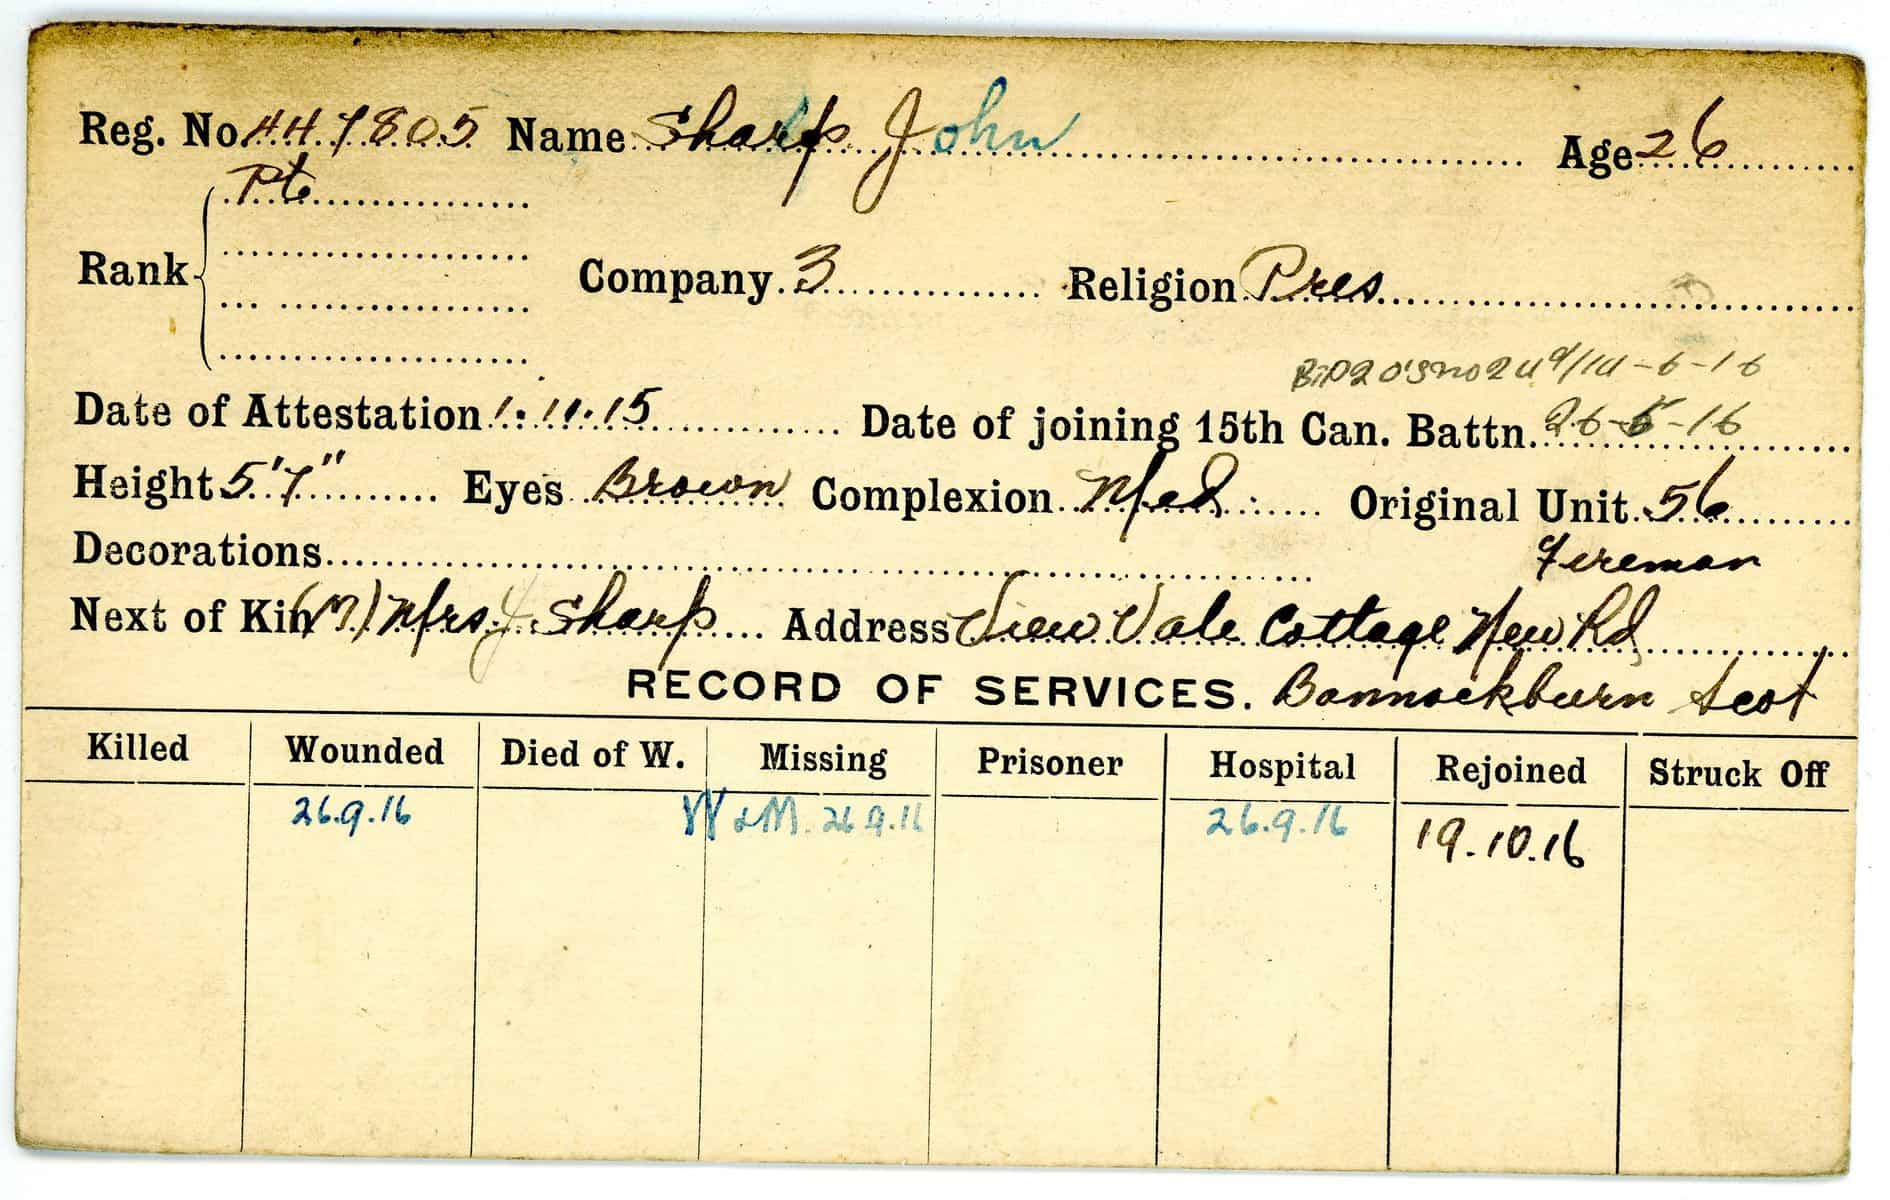 Reg. No. 447805 Name Sharp John Age 26
Pte
Rank Company 3 Religion Pres
10-6-16
Date of Attestation 1.11.15 Date of joining 15th Can. Battn. 26-5-16
Height 5'7" Eyes Brown Complexion Med. Original Unit 56
Decorations Fireman
Next of Kin (M) Mrs J. Sharp Address View Vale Cottage New Rd
RECORD OF SERVICES. Bannockburn Scot
Killed Wounded Died of W. Missing Prisoner Hospital Rejoined Struck Off
26.9.16 W & M. 26.9.16 26.9.16 19.10.16